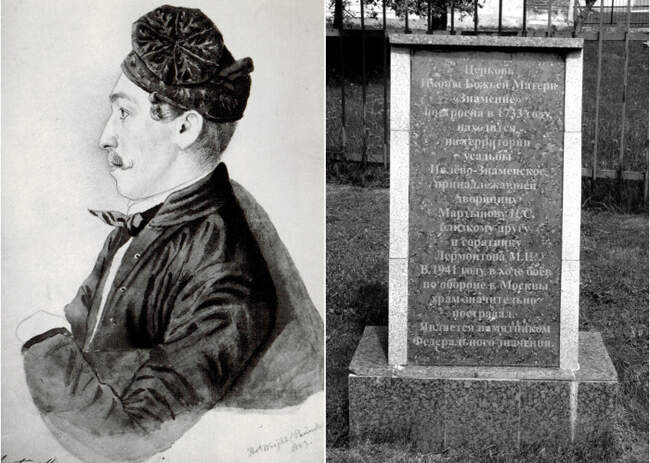 Церковь
Иконы Божьей Матери
«Знамение»
построена в 1733 году,
находится
на территории
усадьбы
Иевлево-Знаменское,
принадлежавшей
дворянину
Мартынову Н.С.
близкому другу
и соратнику
Лермонтова М.Ю.
В 1941 году в ходе боев
по обороне г. Москвы
храм значительно
пострадал.
Является памятником
Федерального значения.